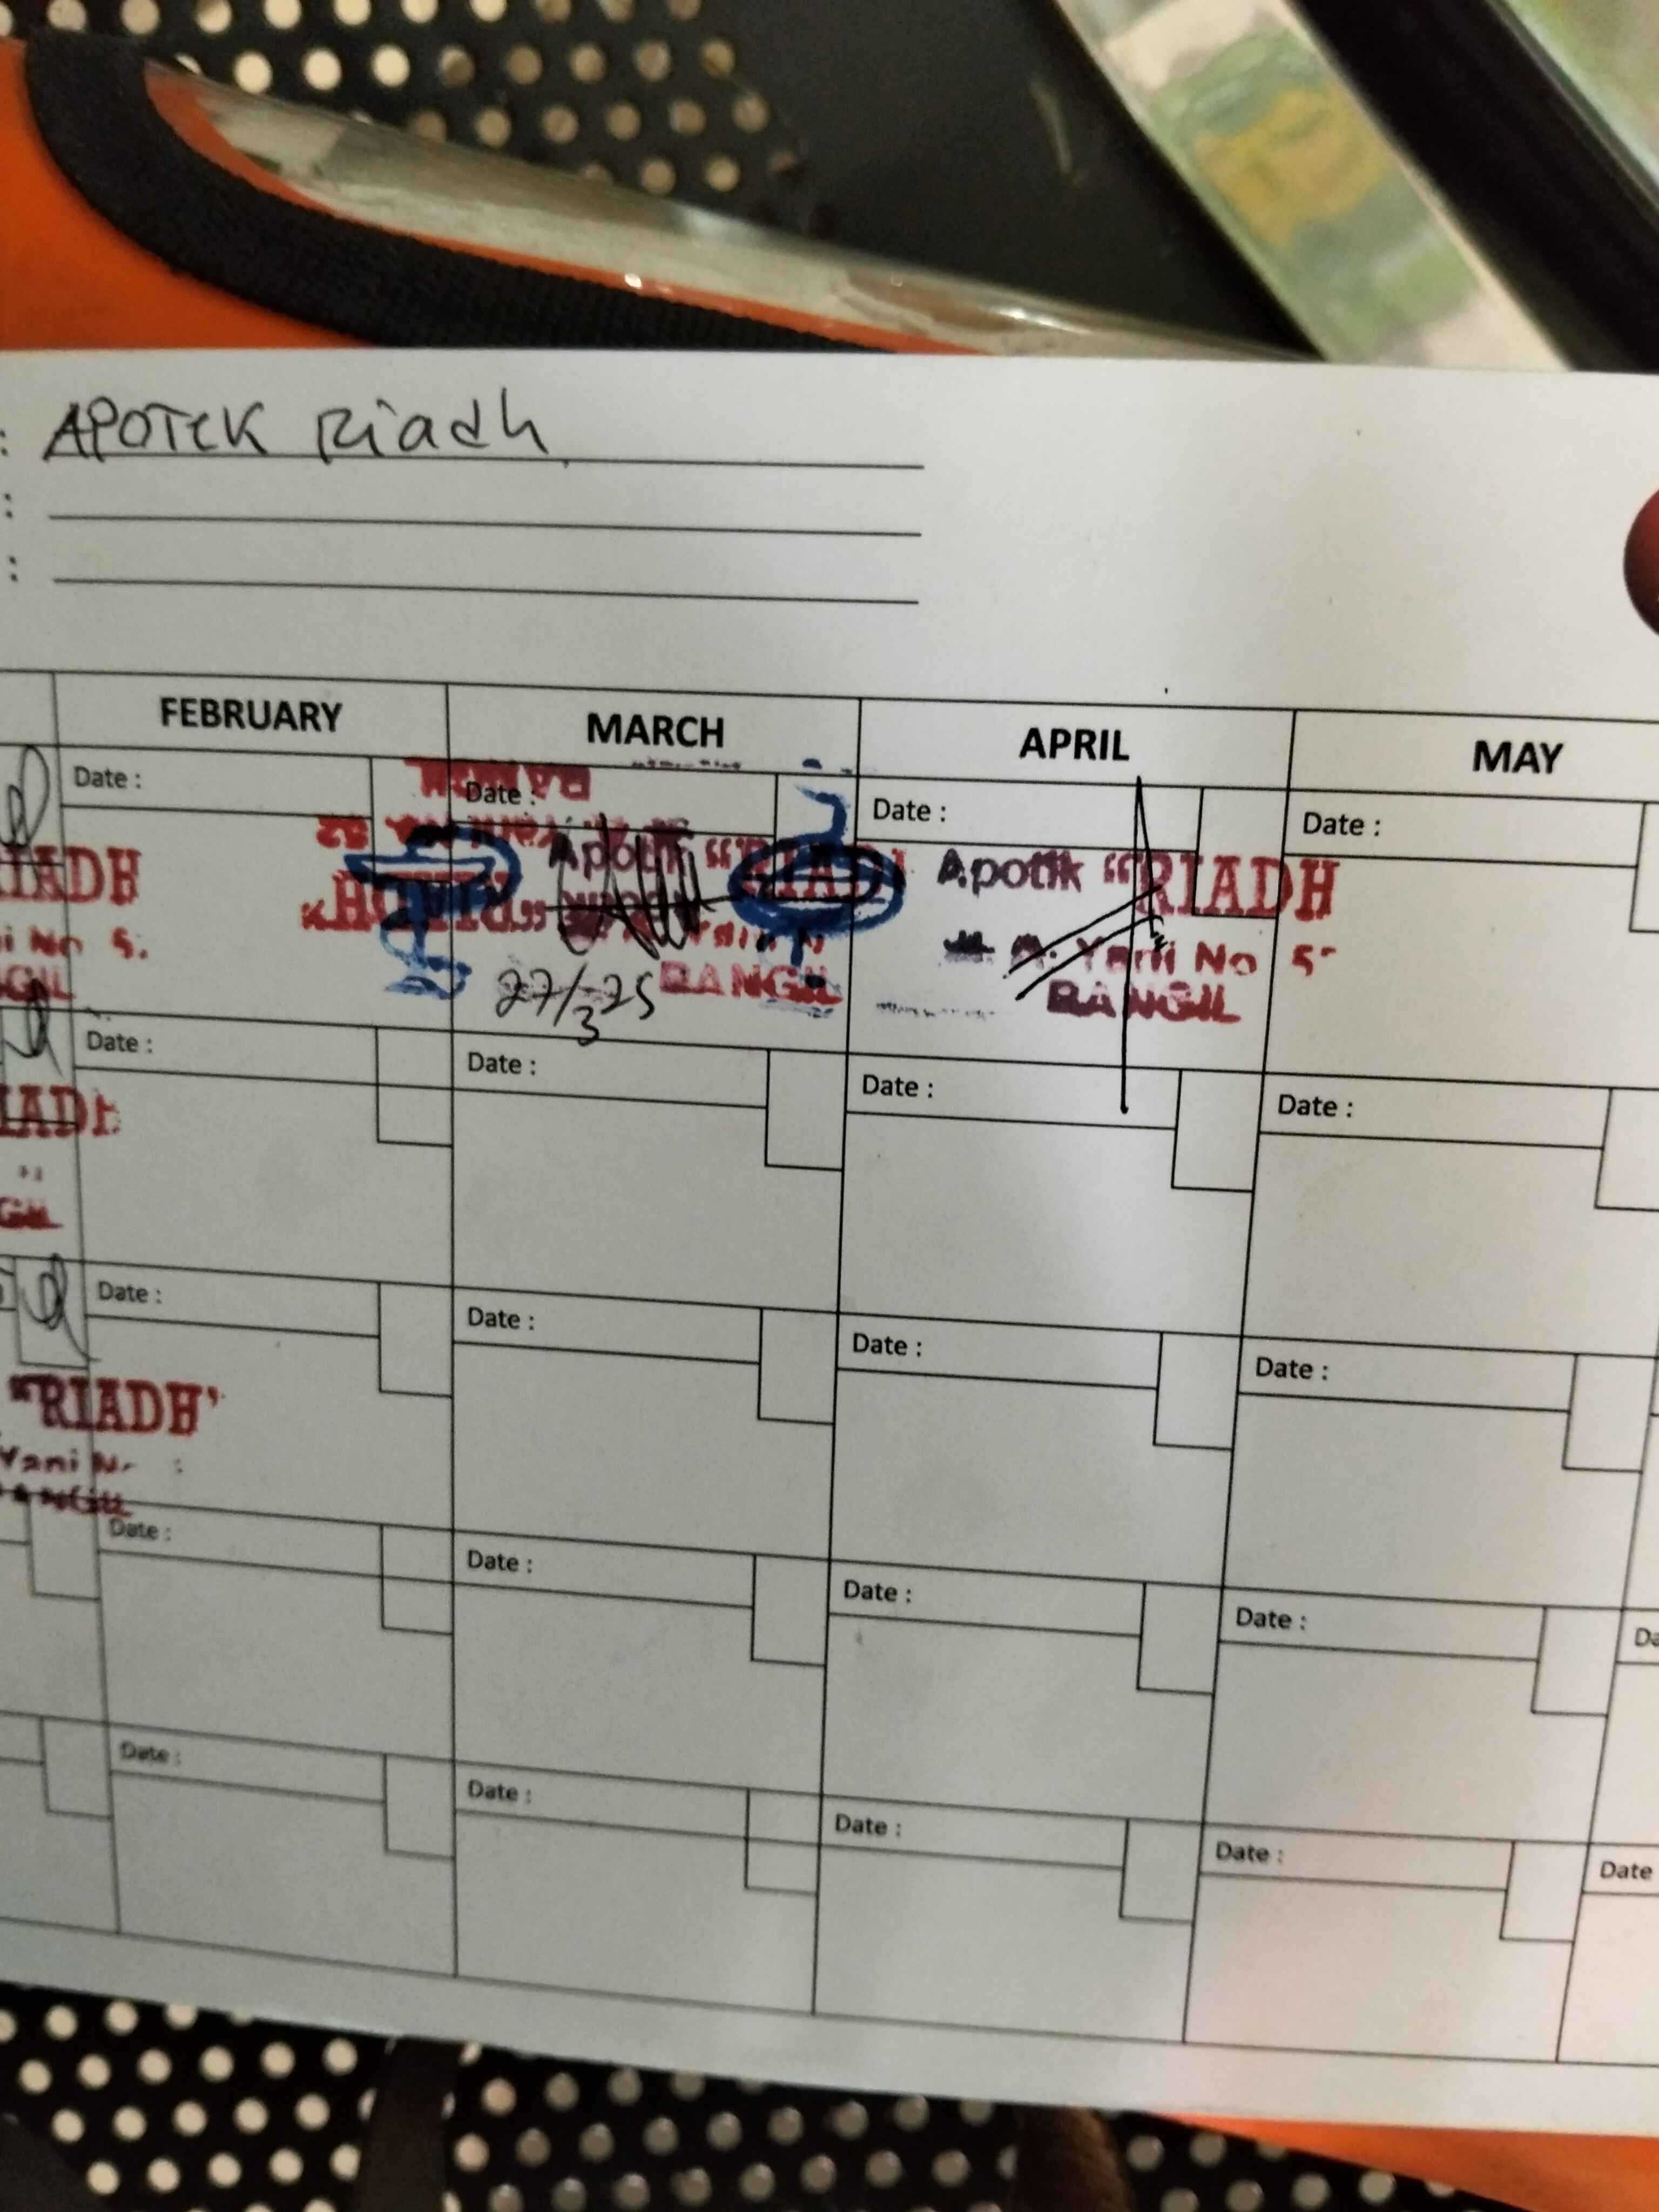 : APOTEK Riadh
:
:
FEBRUARY MARCH APRIL MAY
Date : Date : Date : Date :
RIADH
i No 5.
GIL
BANGIL
"RIADH"
Apotik "RIAD
BANGIL
27/3 25
Apotik "RIADH
A. Yani No 5
BANGIL
Date : Date : Date : Date :
IADH
GIL
Date : Date : Date : Date :
"RIADH'
Yani N
ANGIL
Date : Date : Date : Date : Da
Date : Date : Date : Date : Date